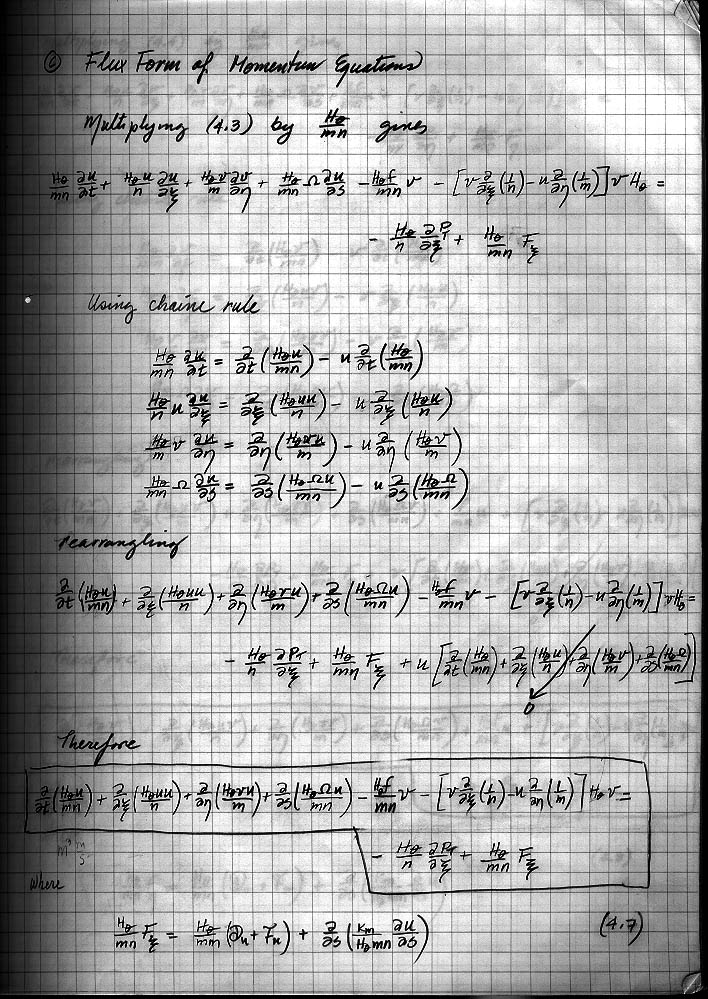 ⑥ Flux Form of Momentum Equations
Multiplying (4.3) by Hθ/mn gives
Hθ/mn ∂u/∂t + Hθu/n ∂u/∂ξ + Hθv/m ∂v/∂η + Hθ/mn Ω ∂u/∂s − Hθf/mn v − [v ∂/∂ξ(1/n) − u ∂/∂η(1/m)] v Hθ =
− Hθ/n ∂P_T/∂ξ + Hθ/mn F_ξ
Using chaine rule
Hθ/mn ∂u/∂t = ∂/∂t (Hθu/mn) − u ∂/∂t (Hθ/mn)
Hθ/n u ∂u/∂ξ = ∂/∂ξ (Hθuu/n) − u ∂/∂ξ (Hθu/n)
Hθ/m v ∂u/∂η = ∂/∂η (Hθvu/m) − u ∂/∂η (Hθv/m)
Hθ/mn Ω ∂u/∂s = ∂/∂s (HθΩu/mn) − u ∂/∂s (HθΩ/mn)
rearrangling
∂/∂t (Hθu/mn) + ∂/∂ξ (Hθuu/n) + ∂/∂η (Hθvu/m) + ∂/∂s (HθΩu/mn) − Hθf/mn v − [v ∂/∂ξ(1/n) − u ∂/∂η(1/m)] vHθ =
− Hθ/n ∂P_T/∂ξ + Hθ/mn F_ξ + u [∂/∂t (Hθ/mn) + ∂/∂ξ (Hθu/n) + ∂/∂η (Hθv/m) + ∂/∂s (HθΩ/mn)]
0
Therefore
∂/∂t (Hθu/mn) + ∂/∂ξ (Hθuu/n) + ∂/∂η (Hθvu/m) + ∂/∂s (HθΩu/mn) − Hθf/mn v − [v ∂/∂ξ(1/n) − u ∂/∂η(1/m)] Hθ v =
− Hθ/n ∂P_T/∂ξ + Hθ/mn F_ξ
m³ m/s
where
Hθ/mn F_ξ = Hθ/mn (𝒟u + ℱu) + ∂/∂s (Km/Hθmn ∂u/∂s) (4.7)